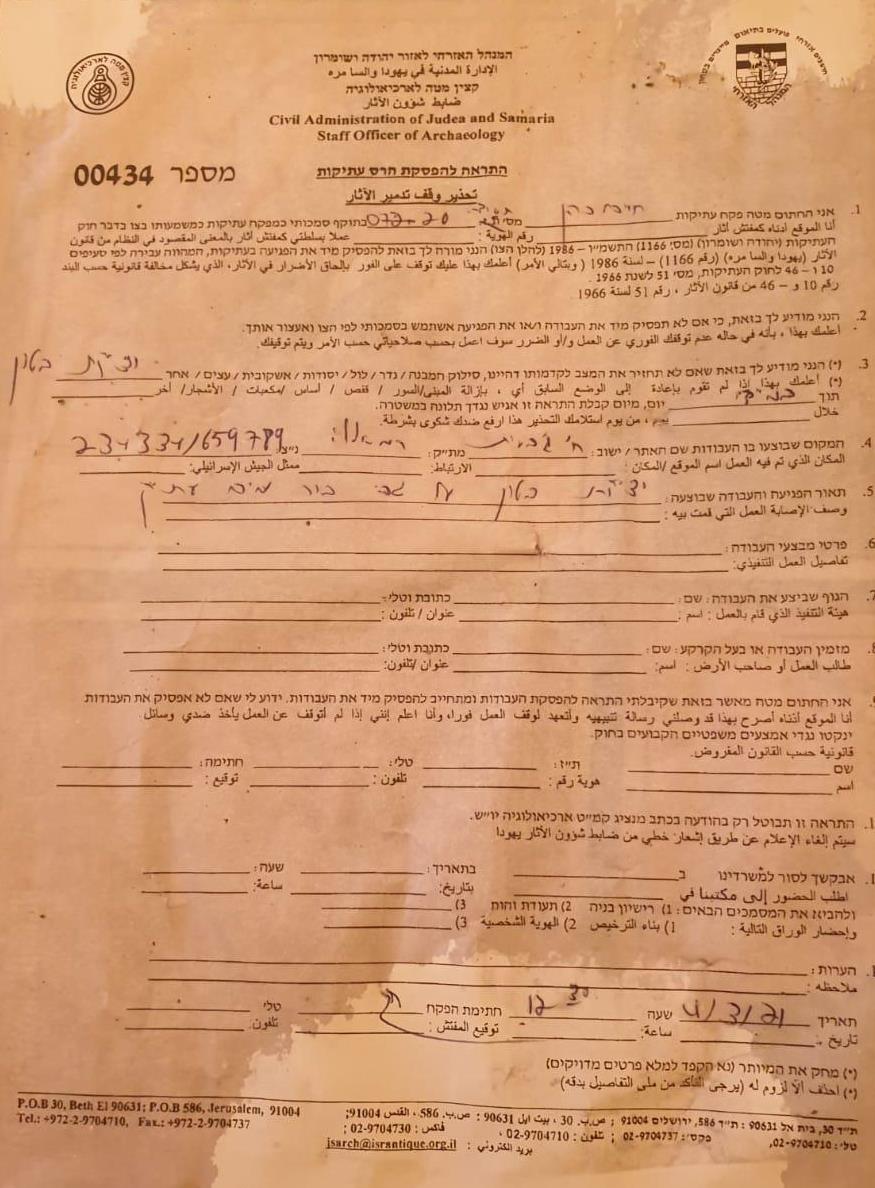 המנהל האזרחי לאזור יהודה ושומרון
الإدارة المدنية في يهودا والسا مره
קצין מטה לארכיאולוגיה
ضابط شؤون الآثار
Civil Administration of Judea and Samaria
Staff Officer of Archaeology
קצין מטה לארכיאולוגיה
המנהל האזרחי
מספר 00434
התראה להפסקת הרס עתיקות
تحذير وقف تدمير الآثار
1. אני החתום מטה פקח עתיקות חיים כהן מס' ת.ז. 073-20 בתוקף סמכותי כמפקח עתיקות כמשמעותו בצו בדבר חוק
أنا الموقع أدناه كمفتش آثار رقم الهوية: عملا بسلطتي كمفتش آثار بالمعنى المقصود في النظام من قانون
העתיקות (יהודה ושומרון) (מס' 1166) התשמ"ו – 1986 (להלן הצו) הנני מורה לך בזאת להפסיק מיד את הפגיעה בעתיקות, המהווה עבירה לפי סעיפים
الآثار (يهودا والسا مره) (رقم 1166) – لسنة 1986 (وبتالي الأمر) أعلمك بهذا عليك توقف على الفور بإلحاق الأضرار في الآثار، الذي يشكل مخالفة قانونية حسب البند
10 ו – 46 לחוק העתיקות, מס' 51 לשנת 1966
رقم 10 و – 46 من قانون الآثار ، رقم 51 لسنة 1966
2. הנני מודיע לך בזאת, כי אם לא תפסיק מיד את העבודה ו/או את הפגיעה אשתמש בסמכותי לפי הצו ואעצור אותך.
أعلمك بهذا ، بأنه في حاله عدم توقفك الفوري عن العمل و/أو الضرر سوف اعمل بحسب صلاحياتي حسب الأمر ويتم توقيفك.
3. (*) הנני מודיע לך בזאת שאם לא תחזיר את המצב לקדמותו דהיינו, סילוק המבנה / גדר / לול / יסודות / אשקובית / עצים / אחר יציקת בטון
(*) أعلمك بهذا إذا لم تقوم بإعادة إلى الوضع السابق أي ، بإزالة المبنى/السور / قفص / أساس /مكعبات / الأشجار/ أخر
תוך יום, מיום קבלת התראה זו אגיש נגדך תלונה במשטרה.
خلال يوم ، من يوم استلامك التحذير هذا ارفع ضدك شكوى بشرطة.
4. המקום שבוצעו בו העבודות שם האתר / ישוב : מת"ק: רמאללה נ"צ: 234334/659789
المكان الذي تم فيه العمل اسم الموقع /المكان: الارتباط: ممثل الجيش الإسرائيلي:
5. תאור הפגיעה והעבודה שבוצעה : יציקת בטון על גבי בור מים עתיק
وصف الإصابة العمل التي قمت بيه :
6. פרטי מבצעי העבודה :
تفاصيل العمل التنفيذي:
7. הגוף שביצע את העבודה : שם : כתובת וטלי:
هيئة التنفيذ الذي قام بالعمل : اسم : عنوان / تلفون :
8. מזמין העבודה או בעל הקרקע : שם : כתובת וטלי:
طالب العمل أو صاحب الأرض : اسم: عنوان /تلفون:
אני החתום מטה מאשר בזאת שקיבלתי התראה להפסקת העבודות ומתחייב להפסיק מיד את העבודות. ידוע לי שאם לא אפסיק את העבודות
أنا الموقع أدناه أصرح بهذا قد وصلني رسالة تنبيهيه وأتعهد لوقف العمل فورا، وأنا اعلم إنني إذا لم أتوقف عن العمل يأخذ ضدي وسائل.
ינקטו נגדי אמצעים משפטיים הקבועים בחוק.
قانونية حسب القانون المفروض.
שם ת"ז: טלי: חתימה:
اسم هوية رقم : تلفون : توقيع :
התראה זו תבוטל רק בהודעה בכתב מנציג קמ"ט ארכיאולוגיה יו"ש.
سيتم إلغاء الإعلام عن طريق إشعار خطي من ضابط شؤون الآثار يهودا
אבקשך לסור למשרדינו ב בתאריך: שעה:
اطلب الحضور إلى مكتبنا في بتاريخ: ساعة:
ולהביא את המסמכים הבאים : 1) רישיון בניה 2) תעודת זהות 3)
وإحضار الوراق التالية : 1) بناء الترخيص 2) الهوية الشخصية 3)
הערות :
ملاحظه :
תאריך 4/3/21 שעה 12 30 חתימת הפקח טלי
تاريخ : ساعة: توقيع المفتش : تلفون:
(*) מחק את המיותר (נא הקפד למלא פרטים מדויקים)
(*) احذف ألا لزوم له (يرجى التأكد من ملى التفاصيل بدقه)
P.O.B 30, Beth El 90631; P.O.B 586, Jerusalem, 91004
Tel.: +972-2-9704710, Fax.: +972-2-9704737
ص.ب. 30 ، بيت ايل 90631 : ص.ب. 586 ، القدس 91004;
تلفون : 02-9704710 ، فاكس : 02-9704730 ;
بريد الكتروني : jsarch@israntique.org.il
ת"ד 30, בית אל 90631 : ת"ד 586, ירושלים 91004 ;
טלי: 02-9704710, פקסי: 02-9704737 ;